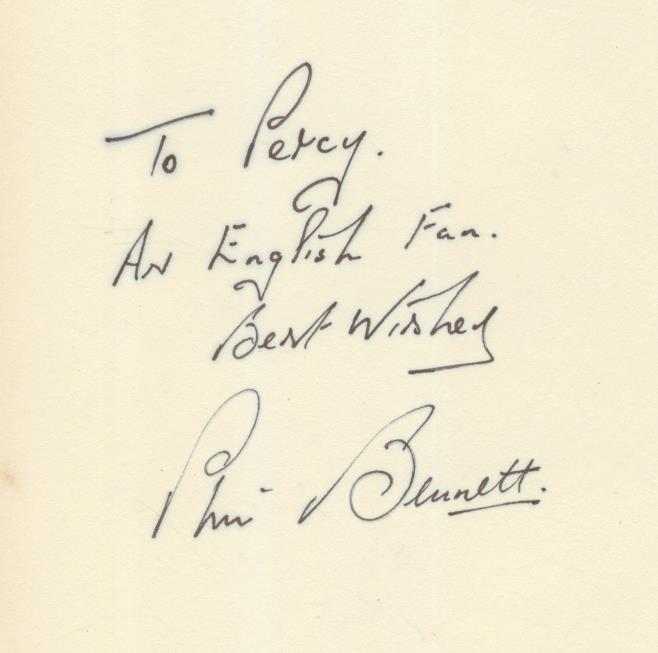 To Percy.
An English Fan.
Best Wishes
Phil Bennett.